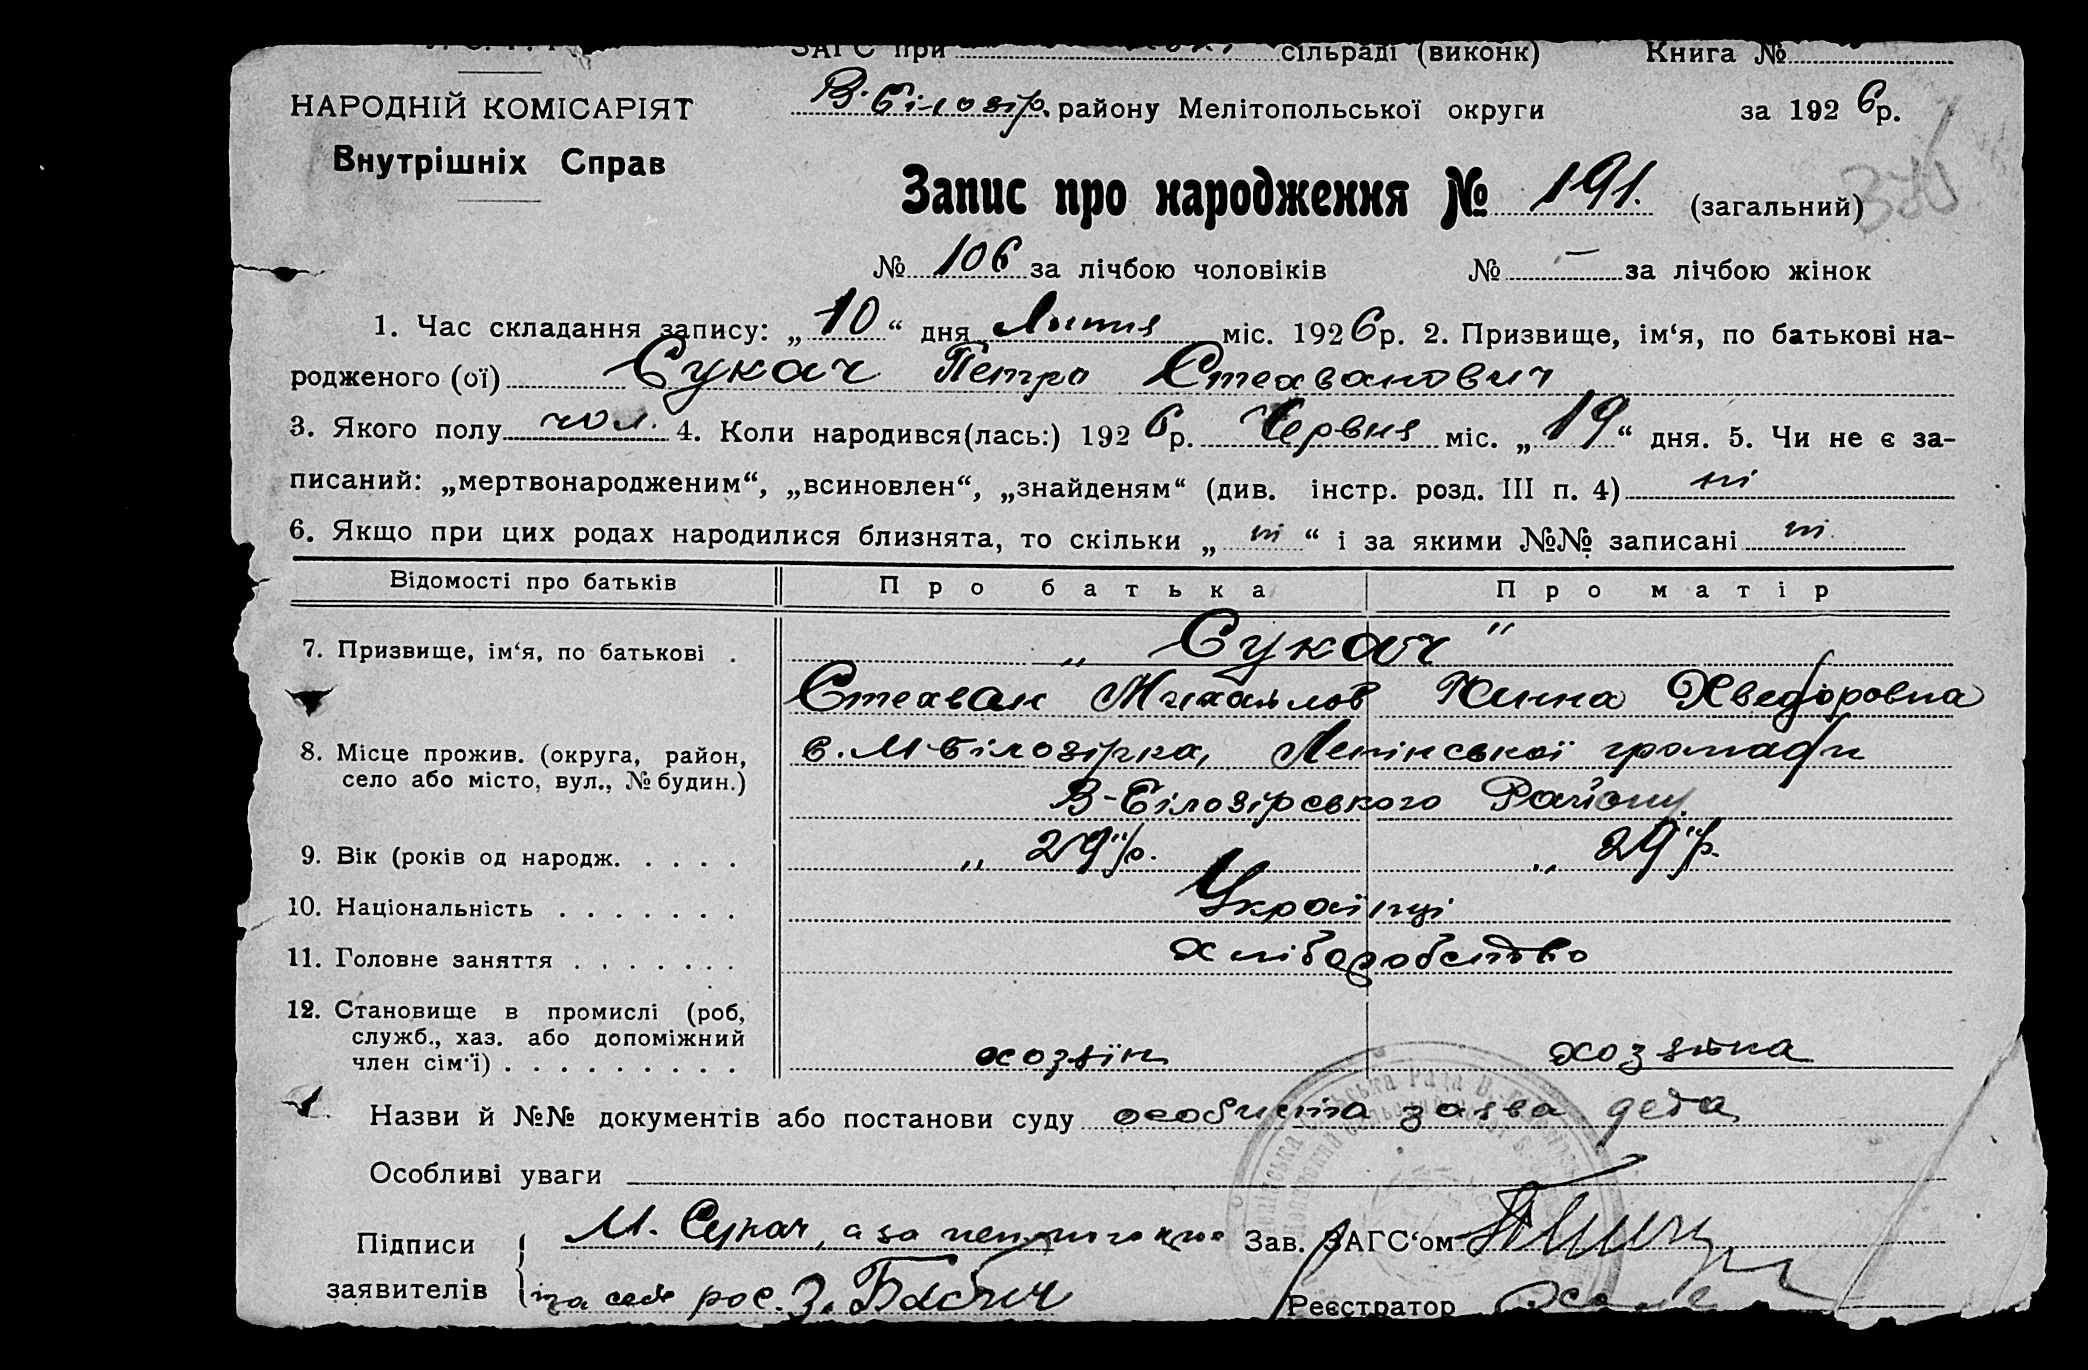 ЗАГС при сільраді (виконк) Книга №
НАРОДНІЙ КОМІСАРІЯТ В-Білозір. району Мелітопольської округи за 1926р.
Внутрішніх Справ
Запис про народження № 191. (загальний)
№ 106 за лічбою чоловіків № — за лічбою жінок
1. Час складання запису: „10“ дня Липня міс. 1926р. 2. Призвище, ім‘я, по батькові на-
родженого (ої) Сукач Петро Стехванович
3. Якого полу чол. 4. Коли народився(лась:) 1926р. Червня міс. „19“ дня. 5. Чи не є за-
писаний: „мертвонародженим“, „всиновлен“, „знайденям“ (див. інстр. розд. III п. 4) ні
6. Якщо при цих родах народилися близнята, то скільки „ні“ і за якими №№ записані ні
Відомості про батьків Про батька Про матір
7. Призвище, ім‘я, по батькові . „Сукач“
Стехван Михайлов Хведоровна
8. Місце прожив. (округа, район, с. М-Білозірка, Ленінської громади
село або місто, вул., № будин.) В-Білозірського Району
9. Вік (років од народж. . . . . „29“ р. „29“ р.
10. Національність . . . . . . . Українці
11. Головне заняття . . . . . . . хліборобство
12. Становище в промислі (роб,
служб., хаз. або допоміжний
член сім‘ї) . . . . . . . . . хозяїн хозяйка
Назви й №№ документів або постанови суду особиста заява деда
Особливі уваги
Підписи М. Сукач, а за неписьменного Зав. ЗАГС‘ом
заявителів за себе рос. З. Бабич Реєстратор